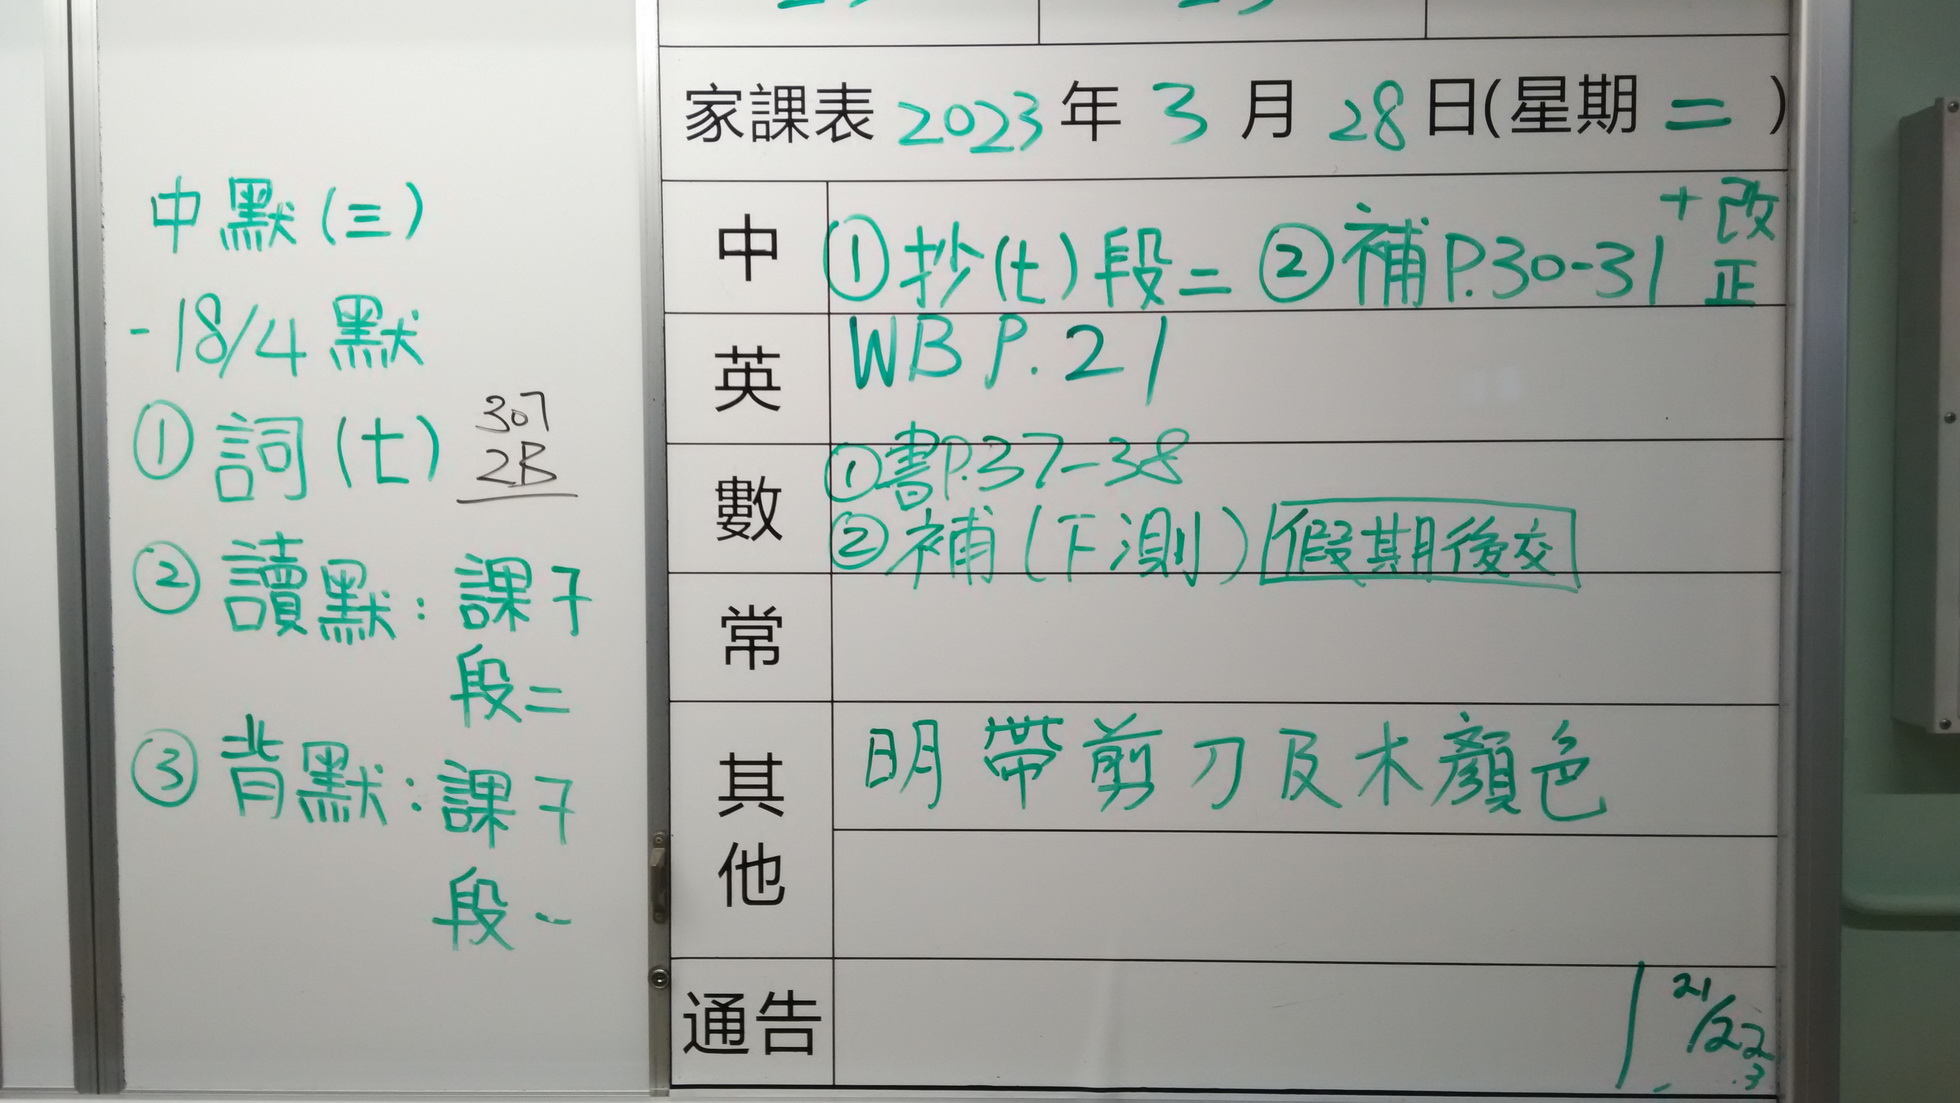 中默(三)
-18/4 默
①詞(七)
307
2B
②讀默:課7
段二
③背默:課7
段一
家課表 2023年 3月 28日(星期二)
中 ①抄(七)段二 ②補P.30-31 +改正
英 WB P.21
數 ①書P.37-38
②補(下測) 假期後交
常
其他 明帶剪刀及木顏色
通告
21/22